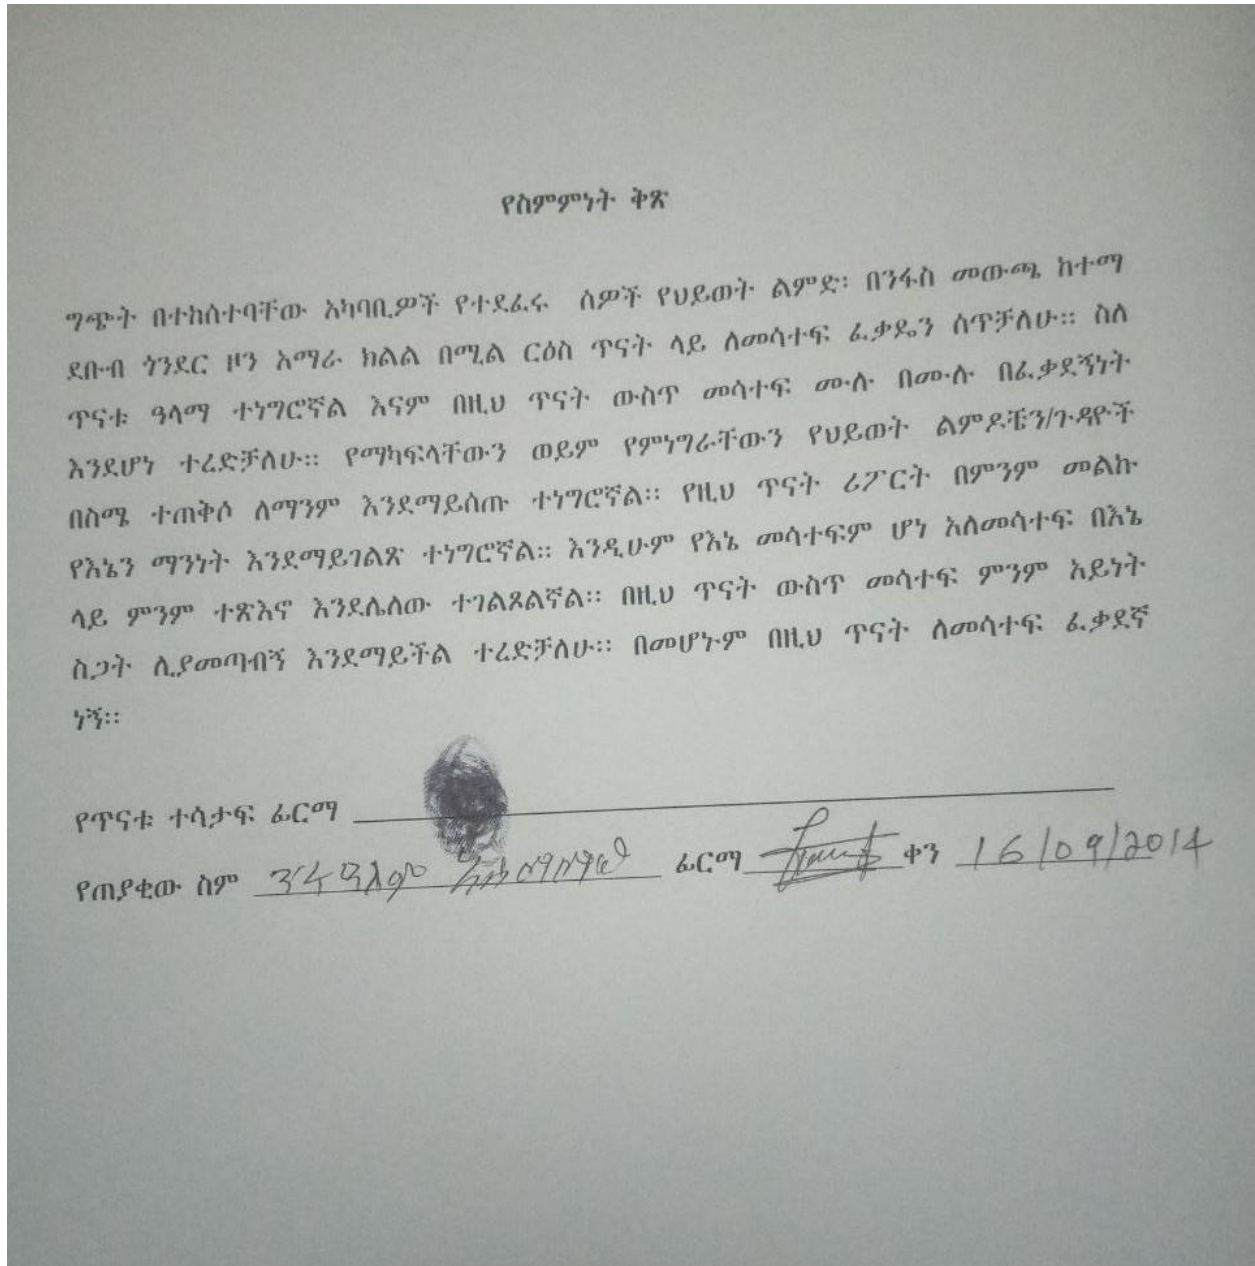 የስምምነት ቅጽ
ግጭት በተከሰተባቸው አካባቢዎች የተደፈሩ ሰዎች የህይወት ልምድ፡ በንፋስ መውጫ ከተማ
ደቡብ ጎንደር ዞን አማራ ክልል በሚል ርዕስ ጥናት ላይ ለመሳተፍ ፈቃዴን ሰጥቻለሁ። ስለ
ጥናቱ ዓላማ ተነግሮኛል እናም በዚህ ጥናት ውስጥ መሳተፍ ሙሉ በሙሉ በፈቃደኝነት
እንደሆነ ተረድቻለሁ። የማካፍላቸውን ወይም የምነግራቸውን የህይወት ልምዶቼን/ጉዳዮች
በስሜ ተጠቅሶ ለማንም እንደማይሰጡ ተነግሮኛል። የዚህ ጥናት ሪፖርት በምንም መልኩ
የእኔን ማንነት እንደማይገልጽ ተነግሮኛል። እንዲሁም የእኔ መሳተፍም ሆነ አለመሳተፍ በእኔ
ላይ ምንም ተጽእኖ እንደሌለው ተገልጾልኛል። በዚህ ጥናት ውስጥ መሳተፍ ምንም አይነት
ስጋት ሊያመጣብኝ እንደማይችል ተረድቻለሁ። በመሆኑም በዚህ ጥናት ለመሳተፍ ፈቃደኛ
ነኝ።
የጥናቱ ተሳታፍ ፊርማ
የጠያቂው ስም ፊርማ ቀን 16/09/2014